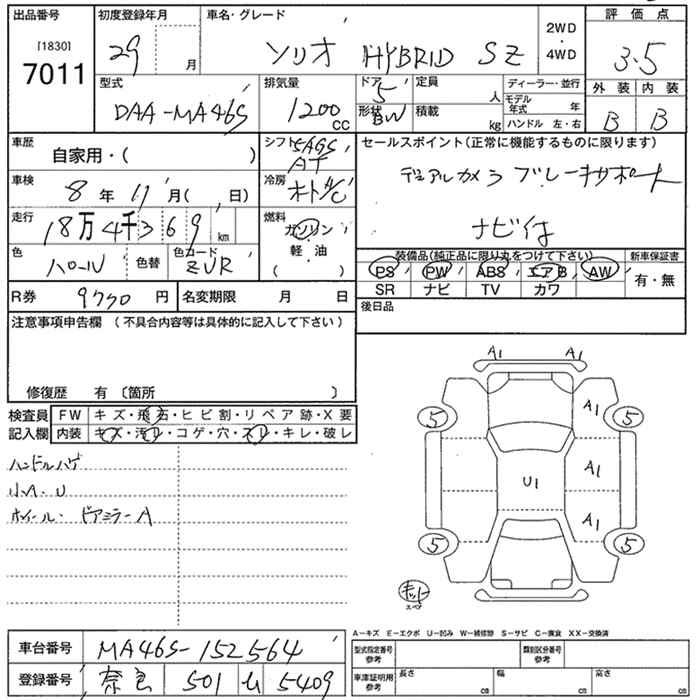 出品番号 初度登録年月 車名・グレード 2WD・4WD 評価点
[1830] 7011 29 月 ソリオ HYBRID SZ 3.5
型式 排気量 ドア 定員 ディーラー・並行 外装 内装
DAA-MA46S 1200 CC 5 人 モデル年式 年 B B
形状 BW 積載 kg ハンドル 左・右
車歴 自家用・( ) シフト 5AGS AT セールスポイント(正常に機能するものに限ります)
車検 8年 11月( 日) 冷房 デュアルカメラブレーキサポート
走行 18万4千369km 燃料 ガソリン・軽・油 ( ) ナビ付
色 パール 色替 色コード ZVR 装備品(純正品に限り丸をつけて下さい) 新車保証書
PS PW ABS エアB AW 有・無
SR ナビ TV カワ
R券 9730円 名変期限 月 日 後日品
注意事項申告欄(不具合内容等は具体的に記入して下さい)
修復歴 有〔箇所 〕
検査員 FW キズ・飛石・ヒビ割・リペア跡・X要
記入欄 内装 キズ・汚レ・コゲ・穴・スレ・キレ・破レ
ハンドルハゲ
小A・U
ホイール・ドアミラーA
A1 A1
5 A1 5
U1 A1
5 A1 5
キット
A-キズ E-エクボ U-凹み W-補修跡 S-サビ C-腐食 XX-交換済
車台番号 MA46S-152564 型式指定番号 参考 類別区分番号 参考
登録番号 奈良 501 む 5409 車庫証明用 参考 長さ cm 幅 cm 高さ cm